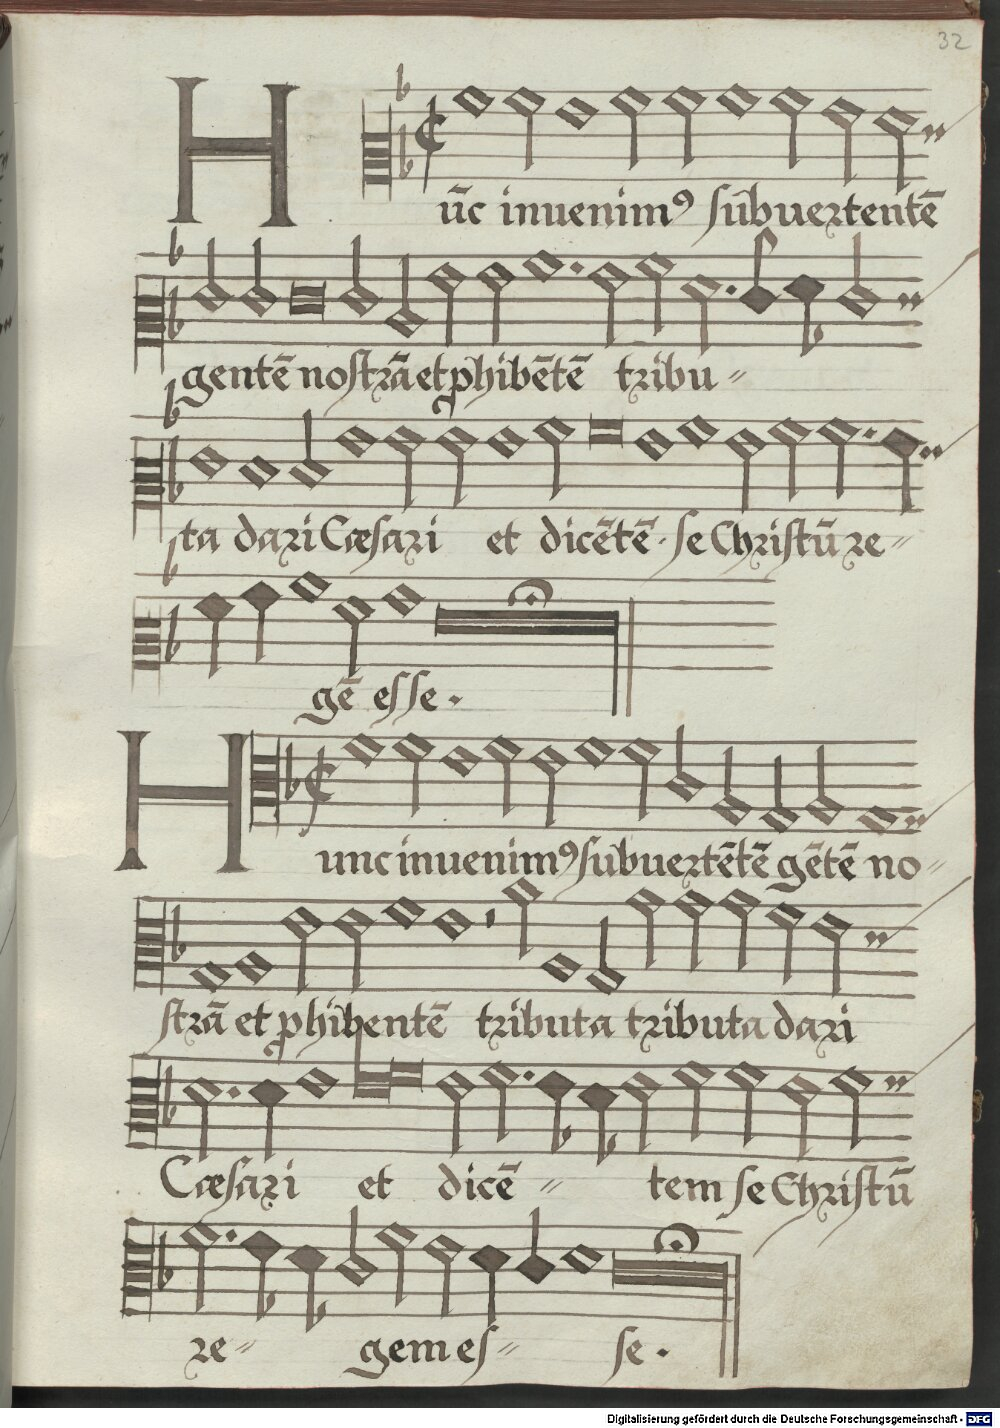 32
Hūc inuenimꝰ sūbuertentē
gentē nostrā et ꝓhibētē tribu〃
ta dari Cæsari et dicētē. se Christū re〃
gē esse.
Hunc inuenimꝰ sūbuertētē gētē no〃
strā et ꝓhibentē tributa tributa dari
Cæsari et dicē〃 tem se Christū
re〃 gem es〃 se.
Digitalisierung gefördert durch die Deutsche Forschungsgemeinschaft - DFG